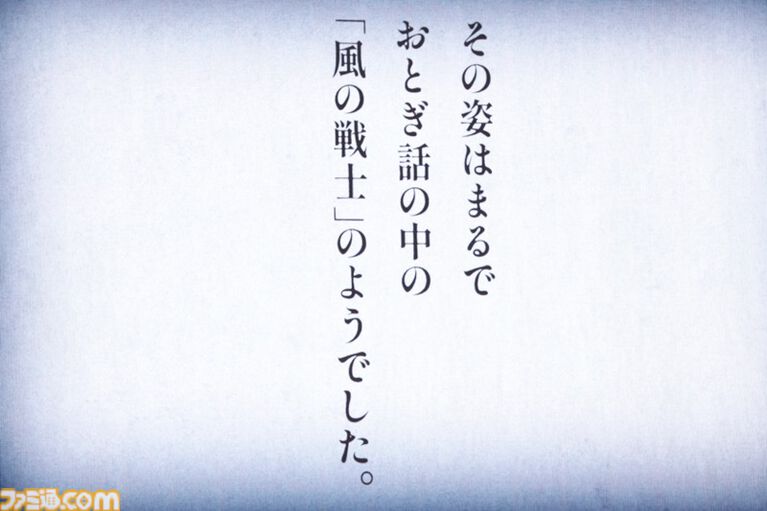 その姿はまるで
おとぎ話の中の
「風の戦士」のようでした。
ファミ通.com